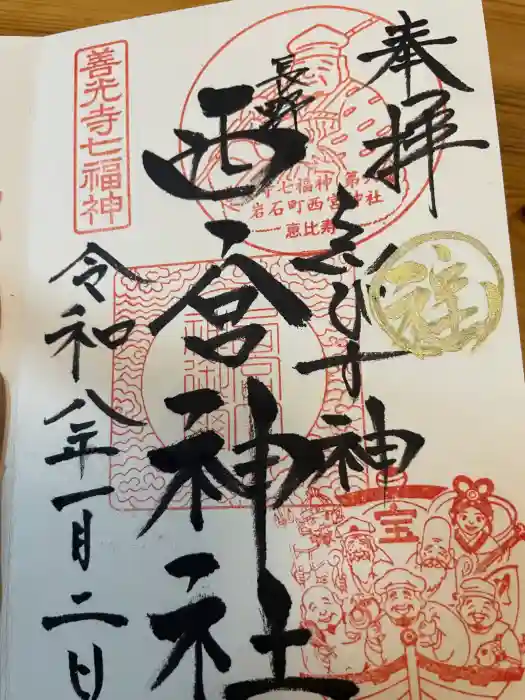 奉拝
えびす神
長野
西宮神社
令和八年一月二日
善光寺七福神
七福神
岩石町西宮神社
恵比寿
宝